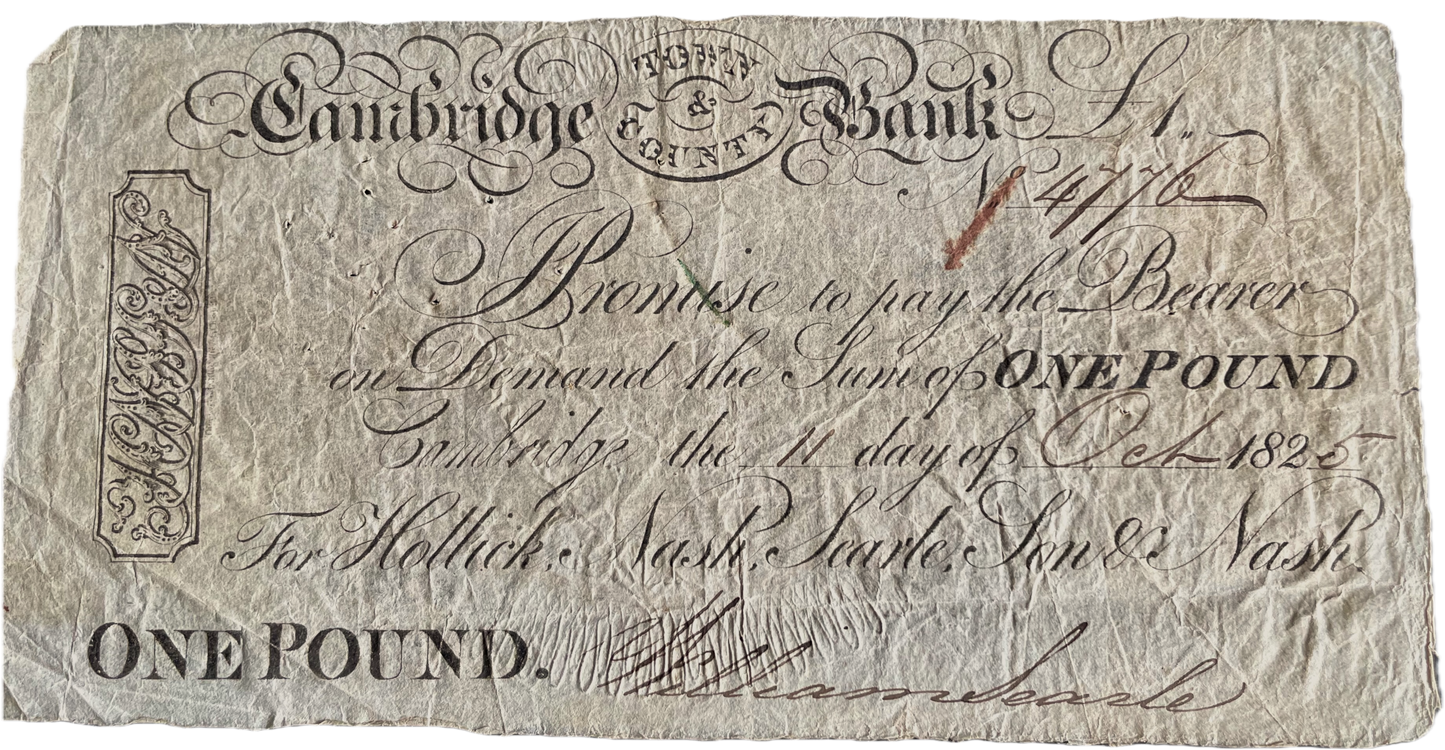 Cambridge TOWN & COUNTY Bank £1,,
No 4776
I Promise to pay the Bearer
on Demand the Sum of ONE POUND
Cambridge the 11 day of Oct 1825
For Hollick, Nash, Searle, Son & Nash.
ONE POUND. William Searle